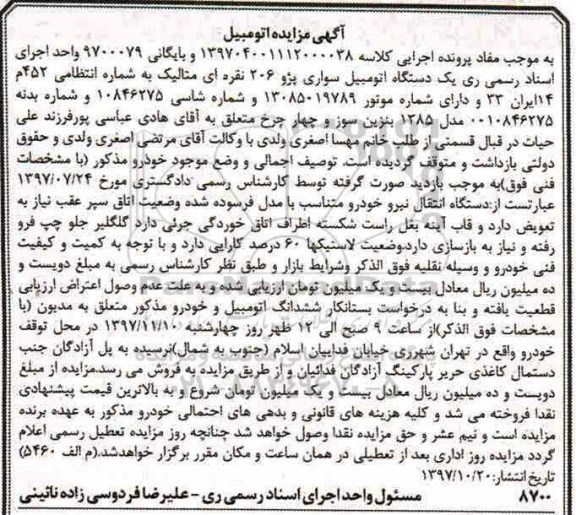 آگهی مزایده اتومبیل
به موجب مفاد پرونده اجرایی کلاسه ۱۳۹۷۰۴۰۰۱۱۱۲۰۰۰۰۳۸ و بایگانی ۹۷۰۰۰۷۹ واحد اجرای
اسناد رسمی ری یک دستگاه اتومبیل سواری پژو ۲۰۶ نقره ای متالیک به شماره انتظامی ۴۵۲م
۱۴ایران ۳۳ و دارای شماره موتور ۱۳۰۸۵۰۱۹۷۸۹ و شماره شاسی ۱۰۸۴۶۲۷۵ و شماره بدنه
۰۰۱۰۸۴۶۲۷۵ مدل ۱۲۸۵ بنزین سوز و چهار چرخ متعلق به آقای هادی عباسی پورفرزند علی
حیات در قبال قسمتی از طلب خانم مهسا اصغری ولدی با وکالت آقای مرتضی اصغری ولدی و حقوق
دولتی بازداشت و متوقف گردیده است. توصیف اجمالی و وضع موجود خودرو مذکور (با مشخصات
فنی فوق)به موجب بازدید صورت گرفته توسط کارشناس رسمی دادگستری مورخ ۱۳۹۷/۰۷/۲۴
عبارتست از:دستگاه انتقال نیرو خودرو متناسب با مدل فرسوده شده وضعیت اتاق سپر عقب نیاز به
تعویض دارد و قاب آینه بغل راست شکسته اطراف اتاق خوردگی جرئی دارد گلگلیر جلو چپ فرو
رفته و نیاز به بازسازی دارد.وضعیت لاستیکها ۶۰ درصد کارایی دارد و با توجه به کمیت و کیفیت
فنی خودرو و وسیله نقلیه فوق الذکر وشرایط بازار و طبق نظر کارشناس رسمی به مبلغ دویست و
ده میلیون ریال معادل بیست و یک میلیون تومان ارزیابی شده و به علت عدم وصول اعتراض ارزیابی
قطعیت یافته و بنا به درخواست بستانکار ششدانگ اتومبیل و خودرو مذکور متعلق به مدیون (با
مشخصات فوق الذکر)از ساعت ۹ صبح الی ۱۲ ظهر روز چهارشنبه ۱۳۹۷/۱۱/۱۰ در محل توقف
خودرو واقع در تهران شهرری خیابان فداییان اسلام (جنوب به شمال)نرسیده به پل آزادگان جنب
دستمال کاغذی حریر پارکینگ آزادگان فدائیان و از طریق مزایده به فروش می رسد.مزایده از مبلغ
دویست و ده میلیون ریال معادل بیست و یک میلیون تومان شروع و به بالاترین قیمت پیشنهادی
نقدا فروخته می شد و کلیه هزینه های قانونی و بدهی های احتمالی خودرو مذکور به عهده برنده
مزایده است و نیم عشر و حق مزایده نقدا وصول خواهد شد چنانچه روز مزایده تعطیل رسمی اعلام
گردد مزایده روز اداری بعد از تعطیلی در همان ساعت و مکان مقرر برگزار خواهدشد.(م الف ۵۴۶۰)
تاریخ انتشار:۱۳۹۷/۱۰/۲۰
۸۷۰۰ مسئول واحد اجرای اسناد رسمی ری - علیرضا فردوسی زاده نائینی